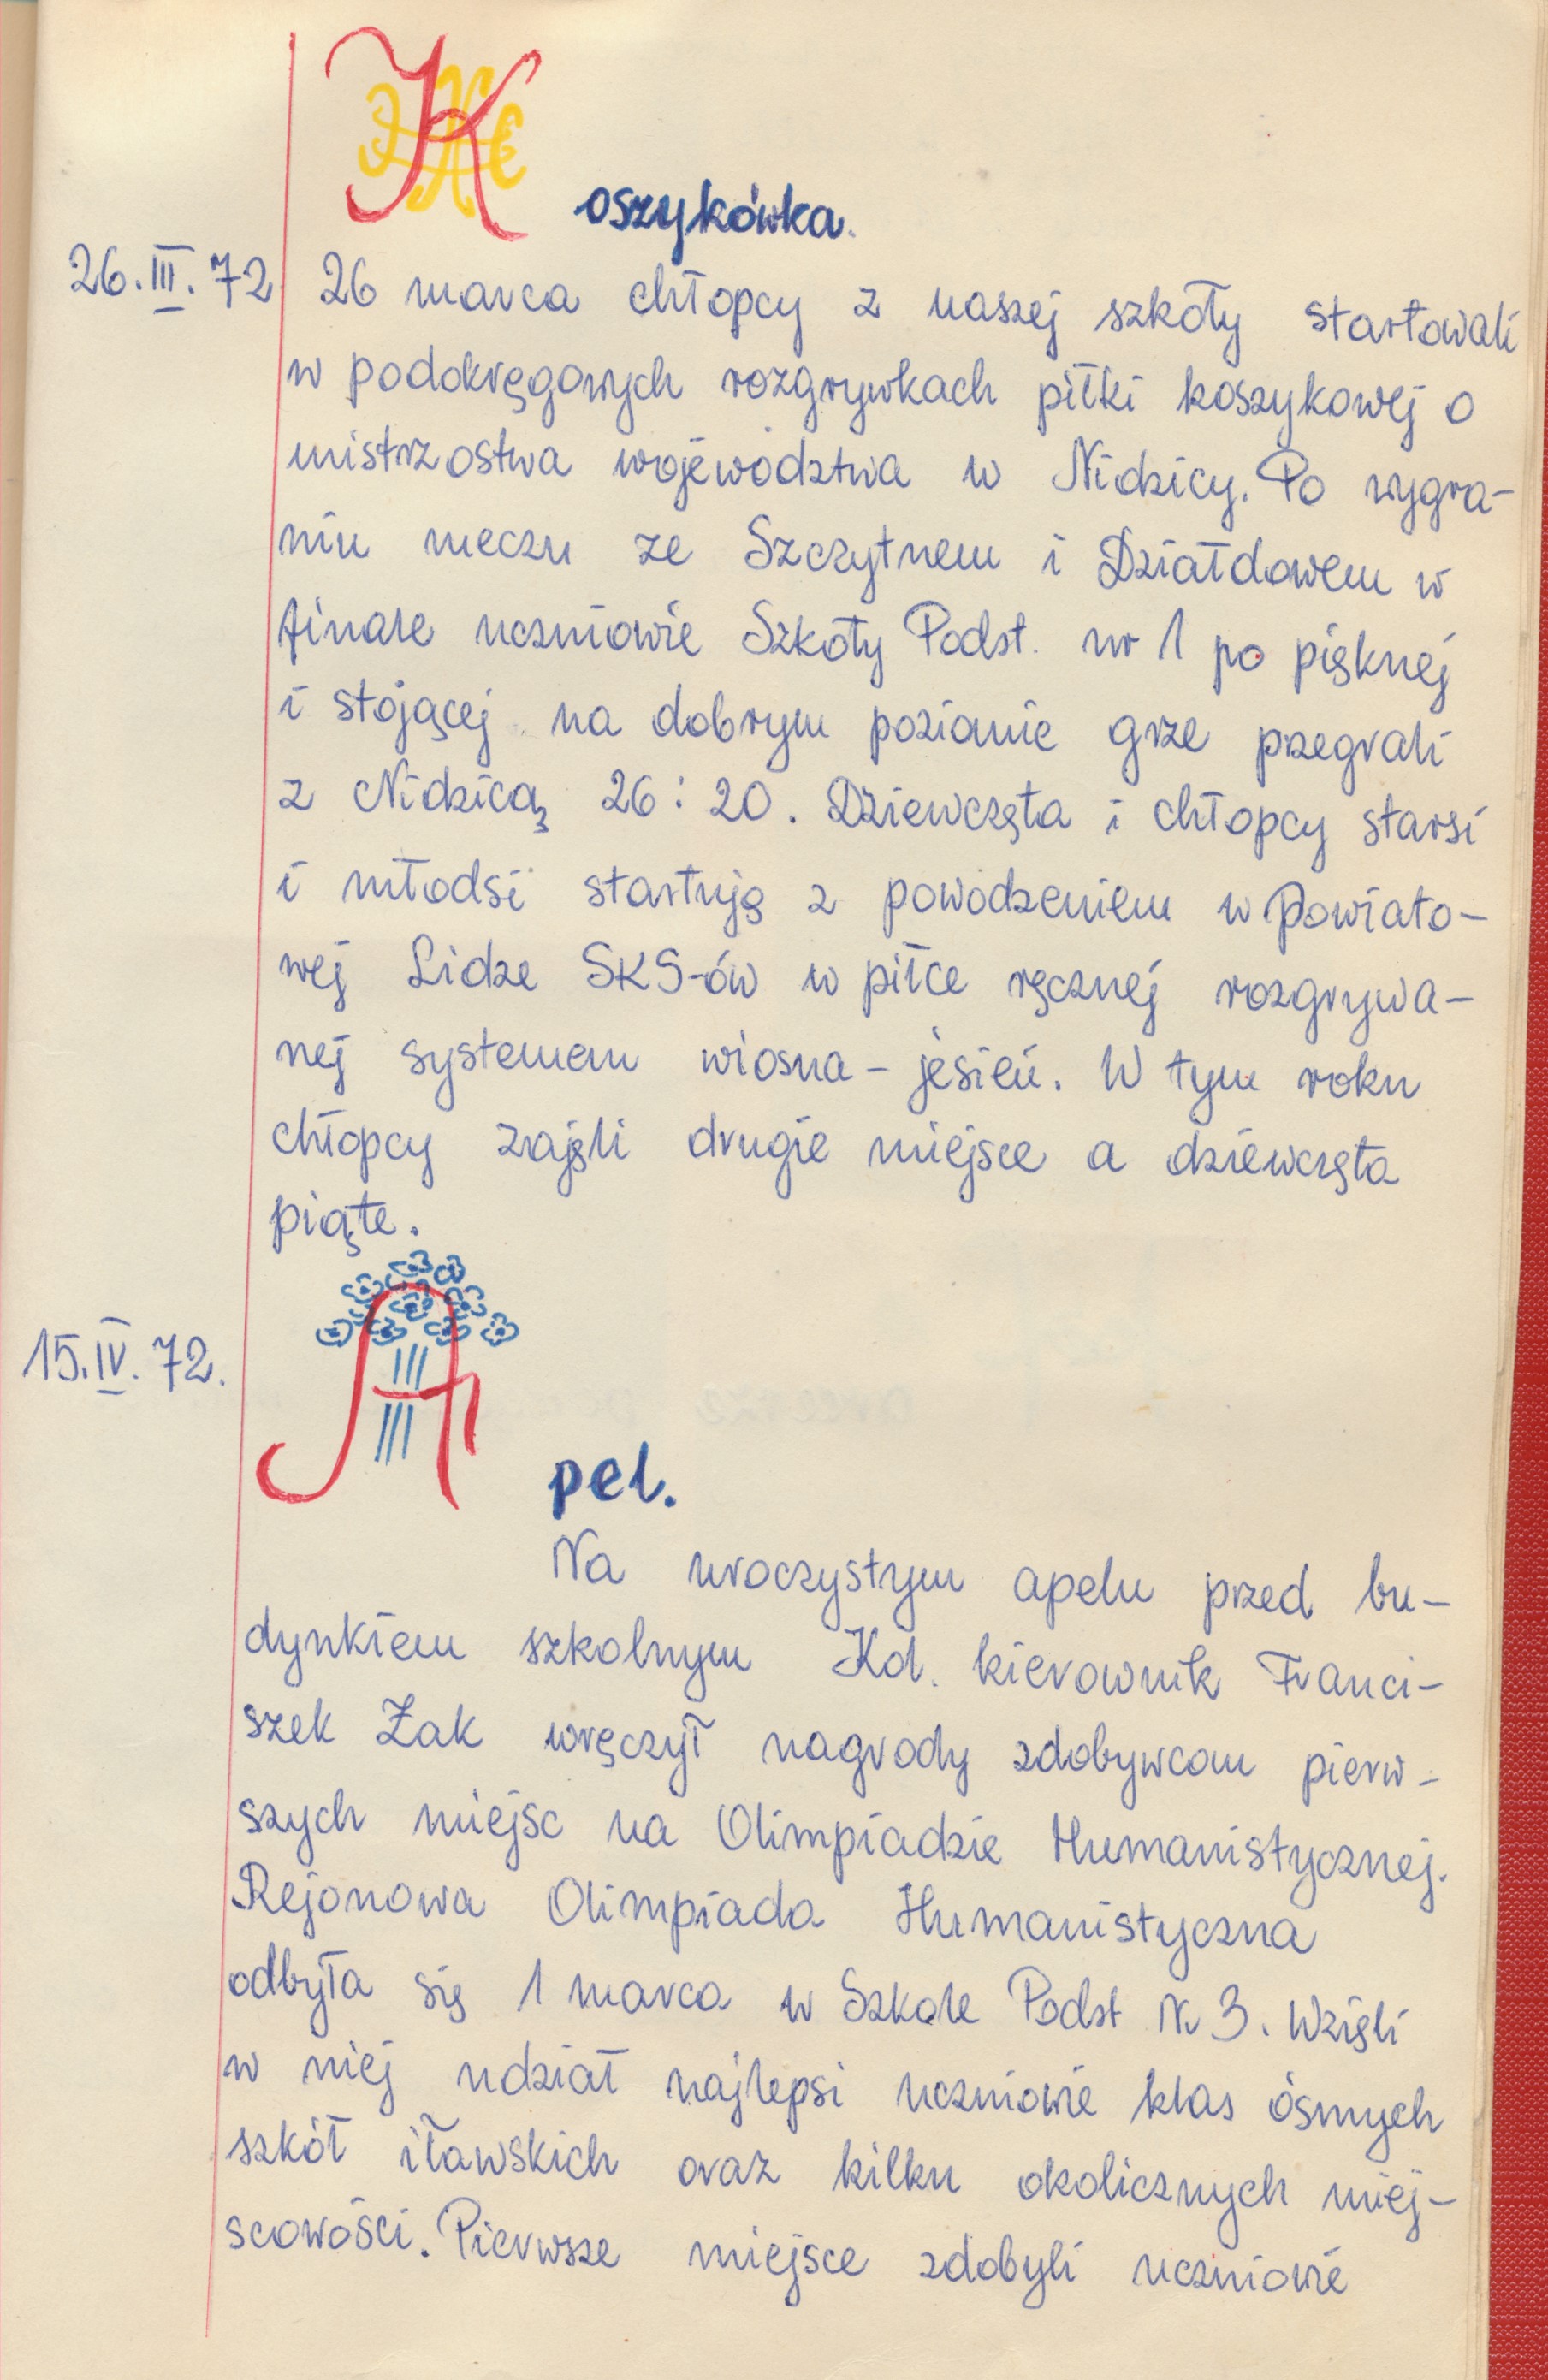 Koszykówka.
26.III.72 26 marca chłopcy z naszej szkoły startowali
w podokręgowych rozgrywkach piłki koszykowej o
mistrzostwa województwa w Nidzicy. Po wygra-
niu meczu ze Szczytnem i Działdowem w
finale uczniowie Szkoły Podst. nr 1 po pięknej
i stojącej na dobrym poziomie grze przegrali
z Nidzicą 26:20. Dziewczęta i chłopcy starsi
i młodsi startują z powodzeniem w Powiato-
wej Lidze SKS-ów w piłce ręcznej rozgrywa-
nej systemem wiosna - jesień. W tym roku
chłopcy zajęli drugie miejsce a dziewczęta
piąte.
15.IV.72. Apel.
Na uroczystym apelu przed bu-
dynkiem szkolnym Kol. kierownik Franci-
szek Żak wręczył nagrody zdobywcom pierw-
szych miejsc na Olimpiadzie Humanistycznej.
Rejonowa Olimpiada Humanistyczna
odbyła się 1 marca w Szkole Podst Nr 3. Wzięli
w niej udział najlepsi uczniowie klas ósmych
szkół iławskich oraz kilku okolicznych miej-
scowości. Pierwsze miejsce zdobyli uczniowie